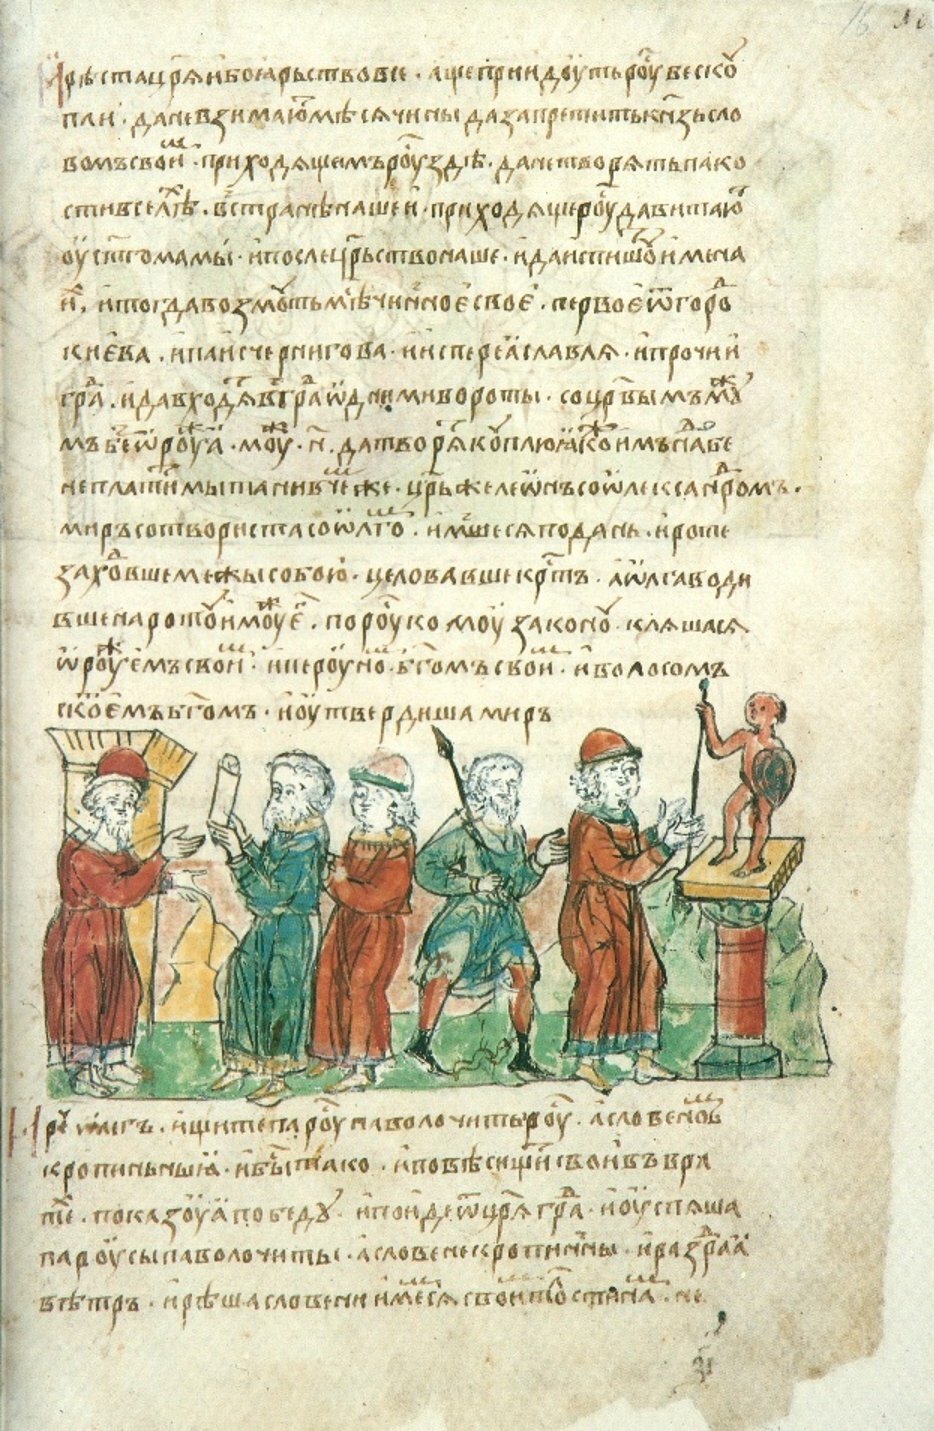 Ѧрѣста цр҃ѧ и боꙗрьство все · аще приидоуть роу҃ бес коу
пли · да не взимаю҃ мѣсѧчины да запретить кнѧ҃зь сло
вомъ свои҃мъ · приходѧщемъ роу҃ здѣ · да не творѧть пако
сти в селѣхъ · в странѣ нашеи · приходѧще роу҃ да витаю҃
оу ст҃го мамы · и послеть цр҃ьство наше · и да испишоу имена
и҃ · и тогда возмоуть мѣсѧчное свое · первое ѿ горо҃
києва · и паки с чернигова · и ис переꙗславлѧ · и прочии
гра҃ · и да входѧ҃ в гра҃ ѡдинеми вороты · со цр҃вымъ моу
мъ без ѡроужьꙗ · моу · н҃ · да творѧ҃ коуплю ꙗкоже имъ надобе
не платѧче мыта ни в чем же · цр҃ь же леѡнъ со ѡлексан҃дромъ ·
миръ сотвориста со ѡлго҃мъ · имшесѧ по дань · и роте
заходивше межы собою · целовавше кр҃тъ · а ѡлга води
вше на ротоу и моужи е҃ · по роускомоу законоу · клѧшасѧ
ѡроужьемъ своимъ · и пероуномъ б҃гомъ своимъ · и волосомъ
скотьемъ б҃гомъ · и оутвердиша миръ
И реч҃ ѡлегъ · ищите пароу паволочиты роу҃ · а словеномъ
кропиньныꙗ · и бы҃ тако · и повѣси щит свои въ вра
те · показоуꙗ победоу · и поиде ѿ цр҃ѧ гра҃ · и оуспѧша
пароусы паволочиты · а словене кропиньны · и раздра ꙗ
вѣтръ · и рѣша словени имемсѧ своимъ толстинамъ · не